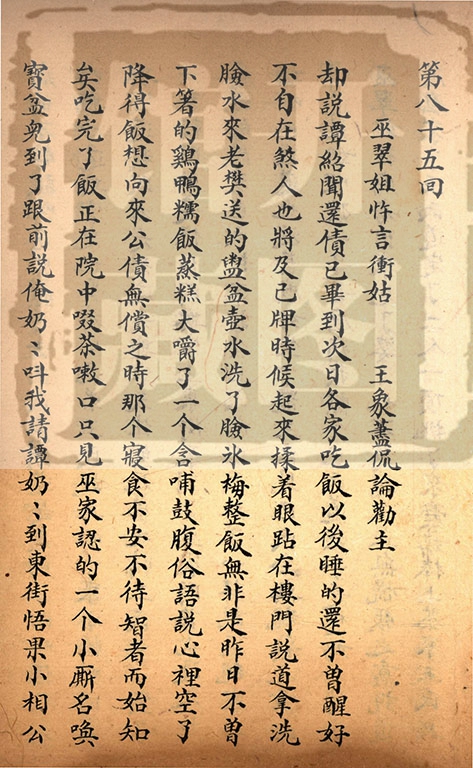 第八十五回
巫翠姐忤言衝姑　王象藎侃論勸主
却說譚紹聞還債已畢到次日各家吃飯以後睡的還不曾醒好
不自在煞人也將及已牌時候起來揉着眼跕在樓門說道拿洗
臉水來老樊送的盥盆壺水洗了臉氷梅整飯無非是昨日不曾
下箸的鷄鴨糯飯蒸糕大嚼了一个含哺鼓腹俗語說心裡空了
降得飯想向來公債無償之時那个寢食不安不待智者而始知
矣吃完了飯正在院中啜茶嗽口只見巫家認的一个小厮名喚
寶盆兒到了跟前說俺奶〻呌我請譚奶〻到東街悟果小相公